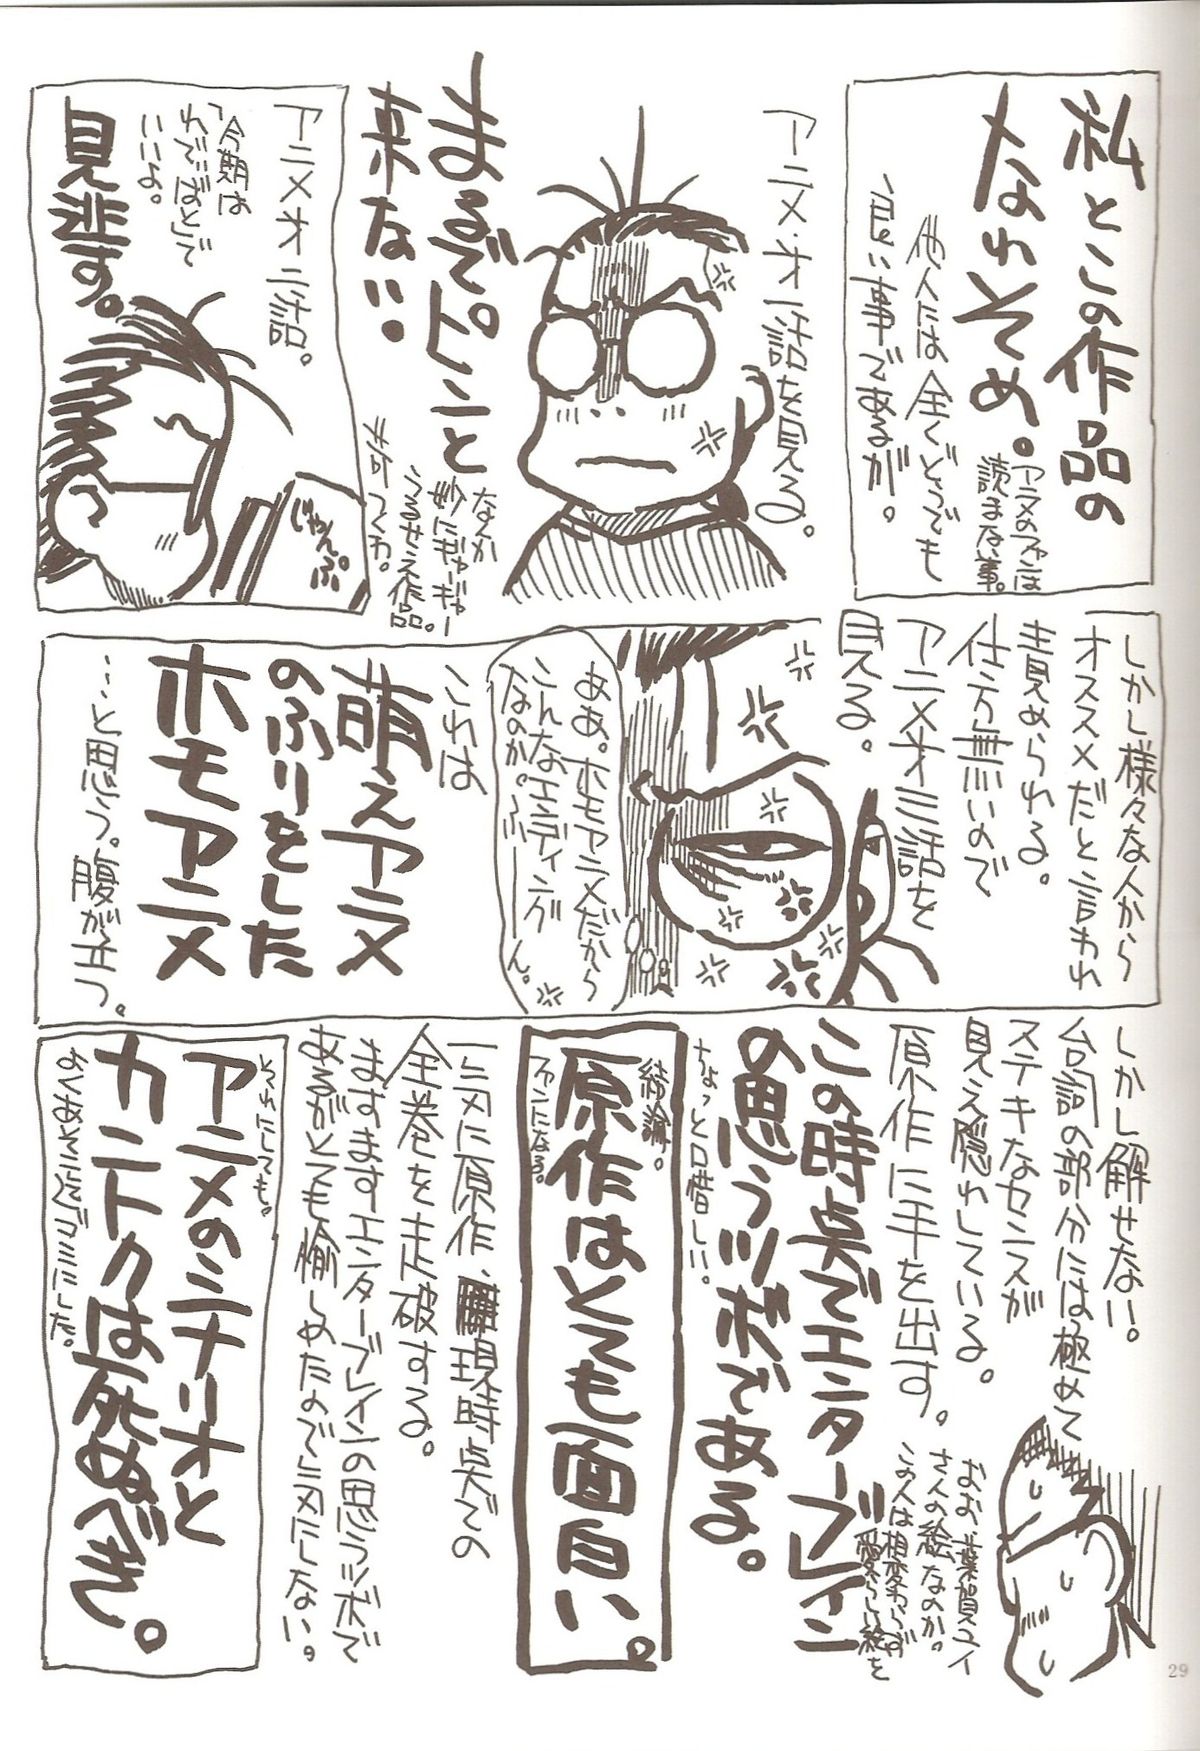 私とこの作品の
なれそめ。
アニメのファンは
読まない事。
他人には全くどうでも
良い事であるが。
アニメ・オ一話を見る。
まるでピンと
来ない。
なんか
妙にギャーギャー
うるせえ作品。
黙ってくれ。
アニメオ二話。
「今期は
れでぃばとで
いいよ。
見逃す。
じゃんぷ
しかし様々な人から
オススメだと言われ
責められる。
仕方無いので
アニメオ三話を
見る。
ああ。ホモアニメだから
こんなエンディング
なのか。ふーーん。
これは
萌えアニメ
のふりをした
ホモアニメ
…と思う。腹が立つ。
しかし解せない。
台詞の部分には極めて
ステキなセンスが
見え隠れしている。
原作に手を出す。
おお、葉賀ユイ
さんの絵なのか。
この人は相変わらず
愛らしい絵を
この時点でエンターブレイン
の思うツボである。
ちょっと口惜しい。
結論。
原作はとても面白い。
ファンになる。
一気に原作、現時点での
全巻を走破する。
ますますエンターブレインの思うツボで
あるがとても愉しめたので気にしない。
それにしても。
アニメのシナリオと
カントクは死ぬべき。